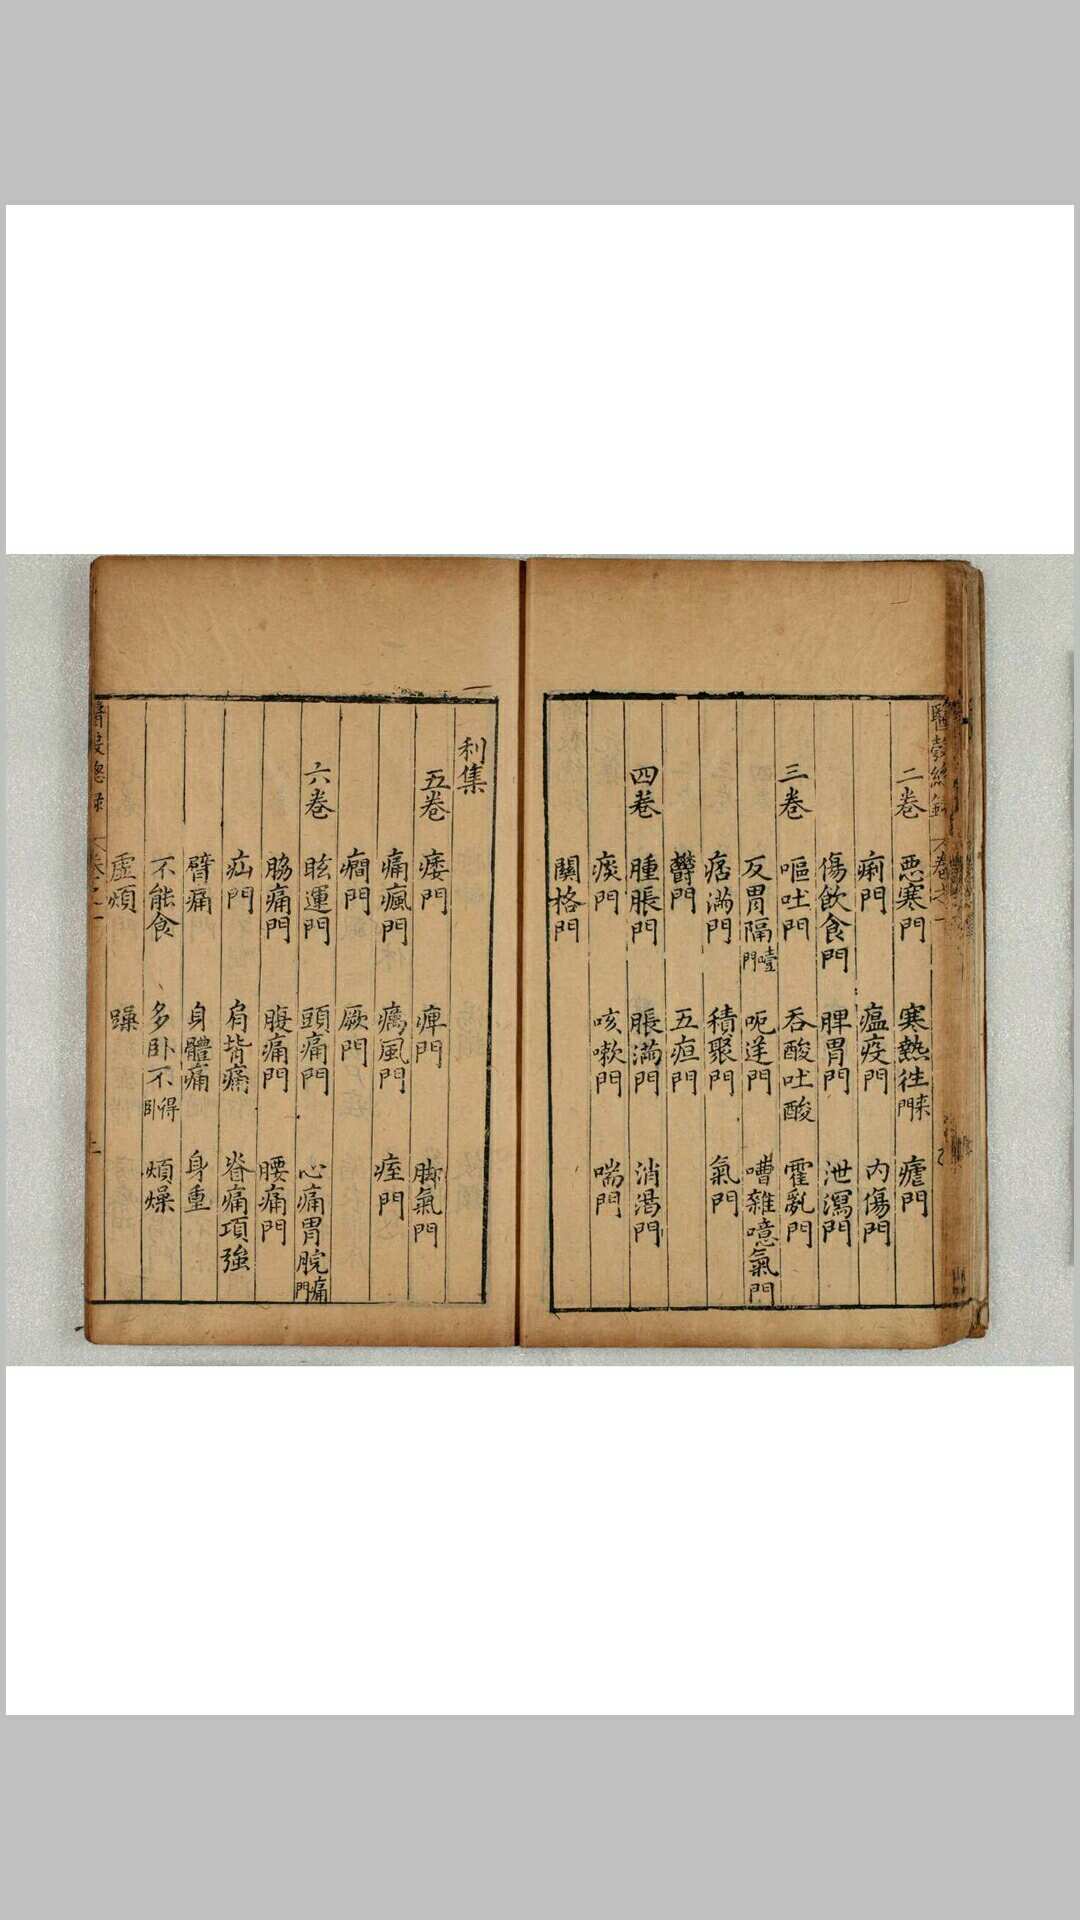 二卷 惡寒門 寒熱往來門 瘧門
痢門 瘟疫門 內傷門
傷飲食門 脾胃門 泄瀉門
三卷 嘔吐門 吞酸吐酸 霍亂門
反胃隔噎門 呃逆門 嘈雜噫氣門
痞滿門 積聚門 氣門
欝門 五疸門
四卷 腫脹門 脹滿門 消渴門
痰門 咳嗽門 喘門
關格門
利集
五卷 痿門 痺門 脚氣門
痛瘋門 癘風門 痓門
癇門 厥門
六卷 眩運門 頭痛門 心痛胃脘痛門
脇痛門 腹痛門 腰痛門
疝門 肩背痛 脊痛項強
臂痛 身體痛 身重
不能食 多臥不得臥 煩燥
虛煩 躁